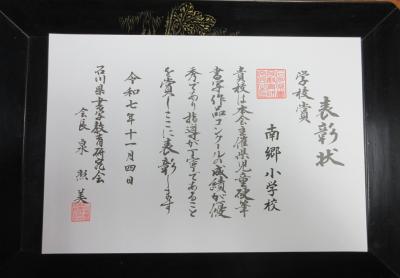 表彰状
学校賞
南郷小学校
貴校は本会主催県児童硬筆
書写作品コンクールの成績が優
秀であり指導が立派であること
を賞しここに表彰します
令和七年十一月四日
石川県書写教育研究会
会長 泉 熙美